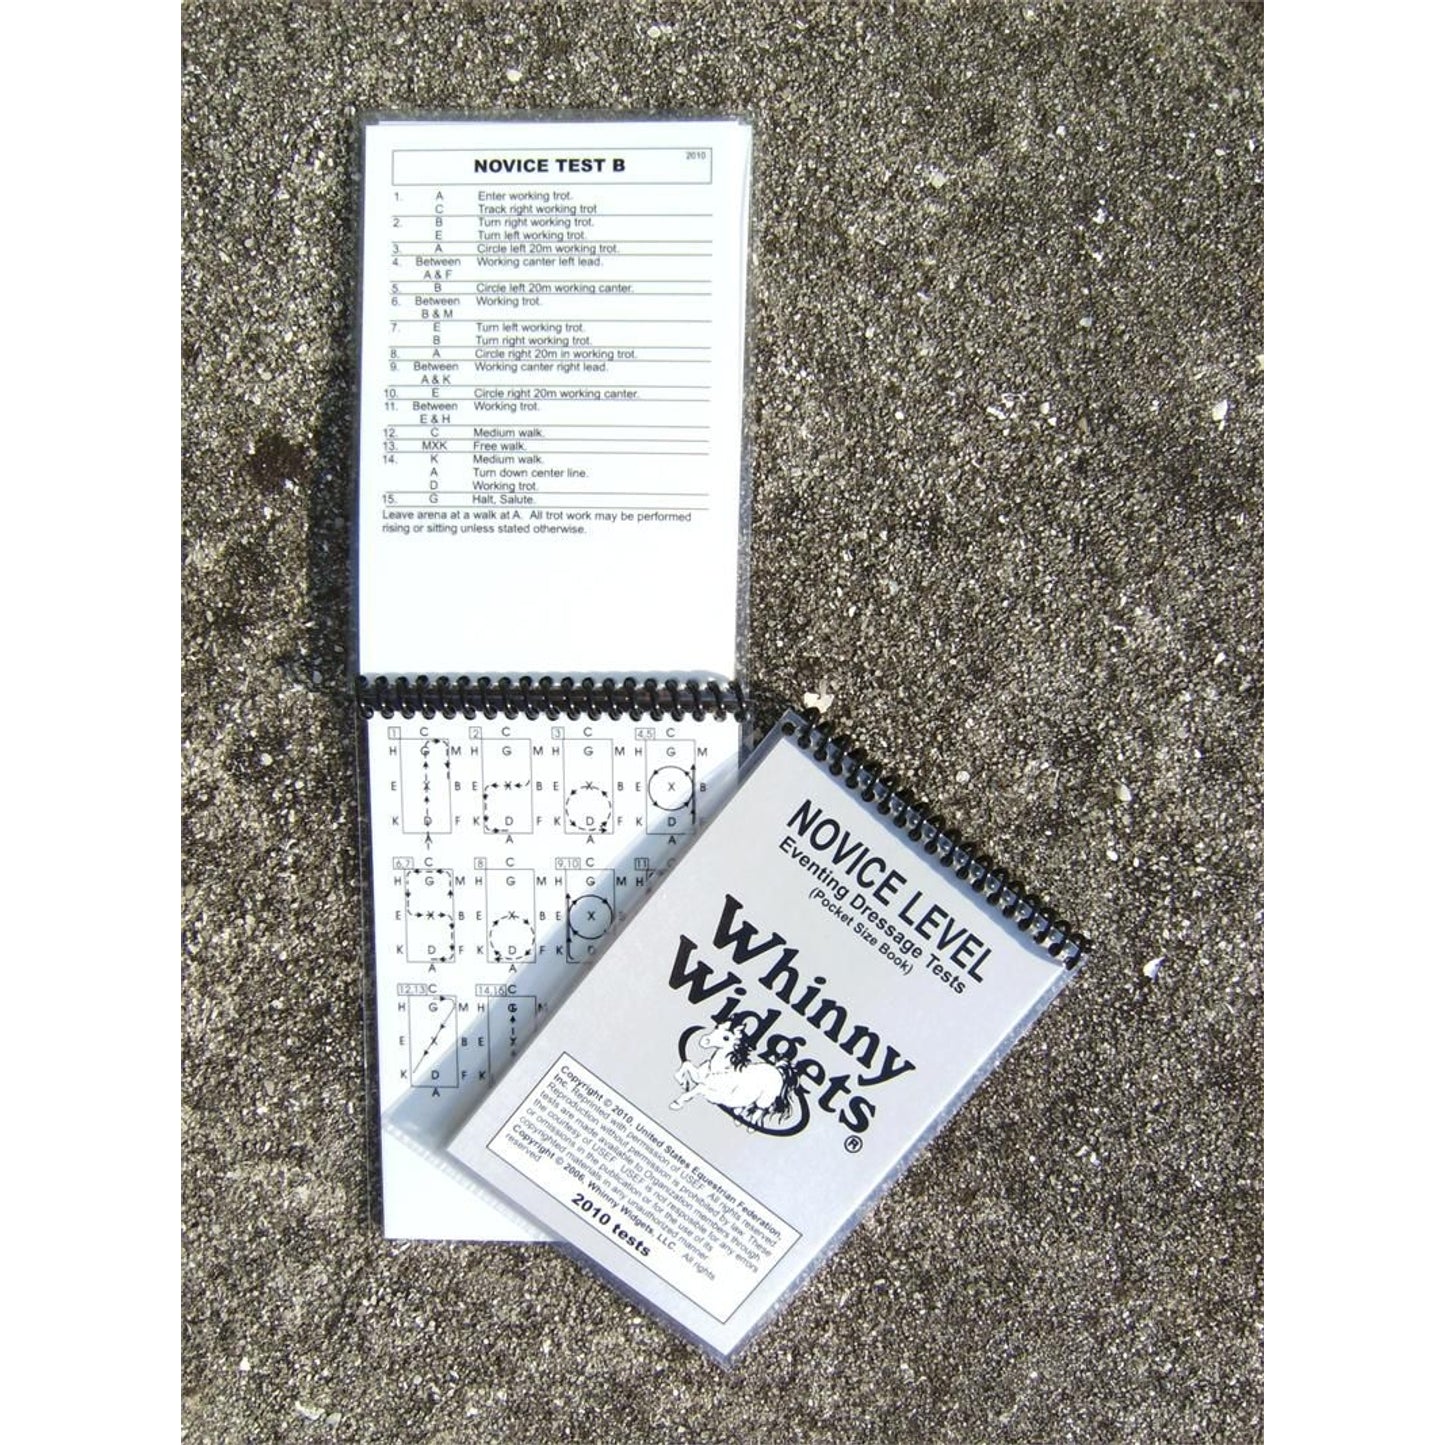 NOVICE TEST B
2010
1. A Enter working trot.
C Track right working trot
2. B Turn right working trot.
E Turn left working trot.
3. A Circle left 20m working trot.
4. Between Working canter left lead.
A & F
5. B Circle left 20m working canter.
6. Between Working trot.
B & M
7. E Turn left working trot.
B Turn right working trot.
8. A Circle right 20m in working trot.
9. Between Working canter right lead.
A & K
10. E Circle right 20m working canter.
11. Between Working trot.
E & H
12. C Medium walk.
13. MXK Free walk.
14. K Medium walk.
A Turn down center line.
D Working trot.
15. G Halt, Salute.
Leave arena at a walk at A. All trot work may be performed
rising or sitting unless stated otherwise.
1 C 2 C 3 C 4,5 C
H G M H G M H G M H G M
E X B E X B E X B E X B
K D F K D F K D F K D F
A A A A
6,7 C 8 C 9,10 C 11 C
H G M H G M H G M H
E X B E X B E X B
K D F K D F K D
A A
12,13 C 14,15 C
H G M H G M
E X B E X
K D F K
A
NOVICE LEVEL
Eventing Dressage Tests
(Pocket Size Book)
Whinny
Widgets
®
Copyright © 2010, United States Equestrian Federation,
Inc. Reprinted with permission of USEF. All rights reserved.
Reproduction without permission is prohibited by law. These
tests are made available to Organization members through
the courtesy of USEF. USEF is not resposible for any errors
or omissions in the publication or for the use of its
copyrighted materials in any unauthorized manner
Copyright © 2006, Whinny Widgets, LLC. All rights
reserved
2010 tests